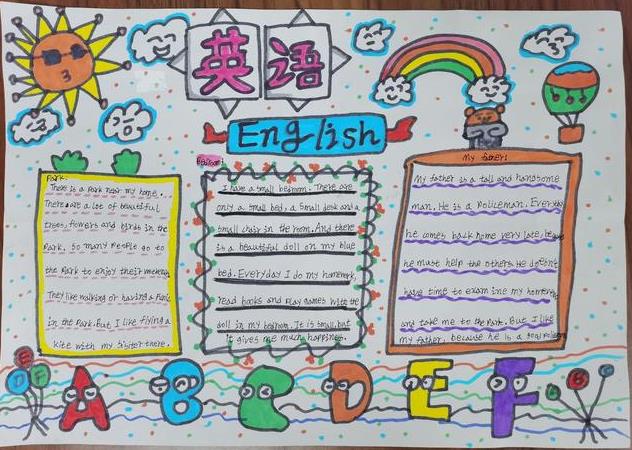 英语
English
Park:
There is a park near my home.
There are a lot of beautiful
trees, flowers and birds in the
Park, so many people go to
the Park to enjoy their
They like walking or having a Picnic
in the Park. But I like flying a
kite with my sister there.
Bedroom:
I have a small bedroom. There are
only a small bed, a small desk and a
small chair in the room. And there
is a beautiful doll on my blue
bed. Everyday I do my homework,
read books and play games with the
doll in my bedroom. It is small, but
it gives me much happiness.
My father:
My father is a tall and handsome
man. He is a Policeman. Everyday
he comes back home very late,
he must help the others. He doesn't
have time to examine my homework
and take me to the Park. But I like
my father, because he is a good
A B C D E F